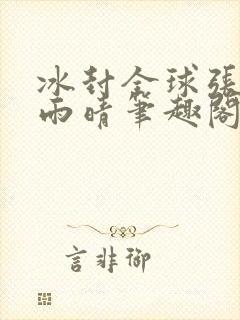 冰封全球張
雨晴筆趣閣
言非御